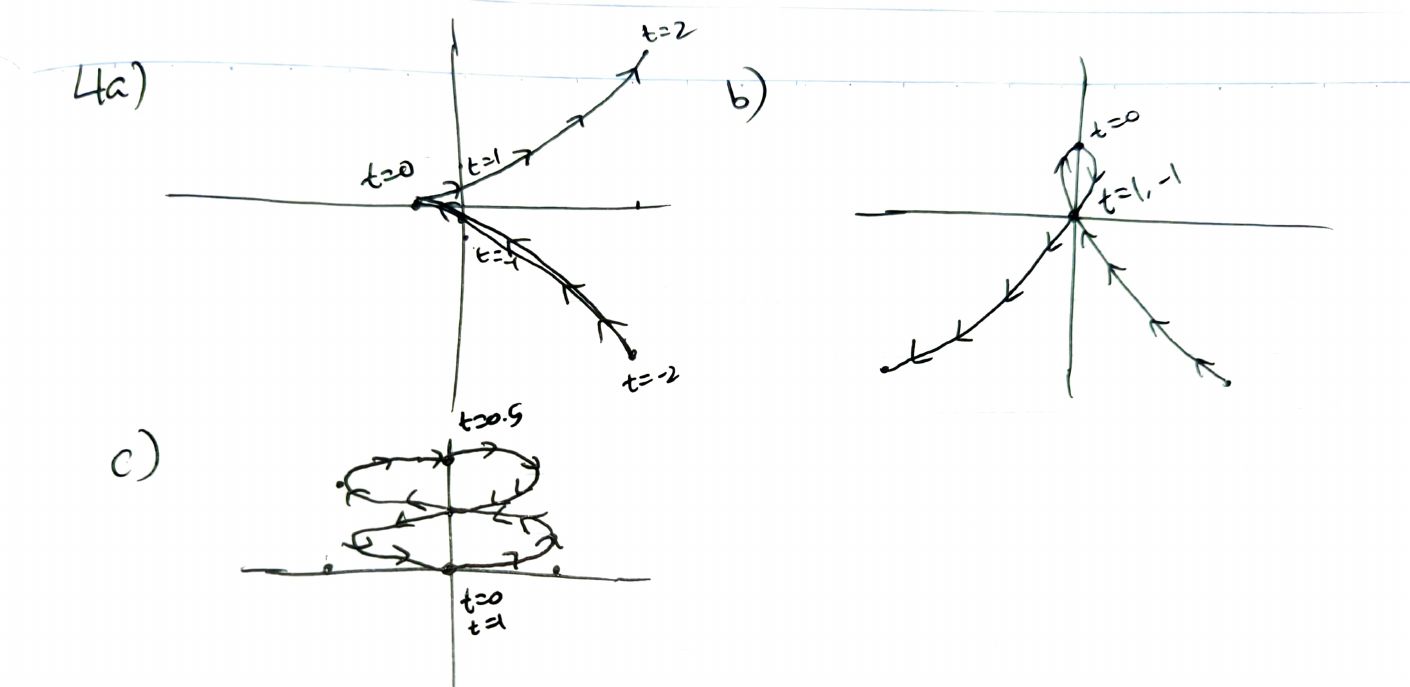 4a)
t=2
t=0
t=1
t=-1
t=-2
b)
t=0
t=1, -1
c)
t=0.5
t=0
t=1